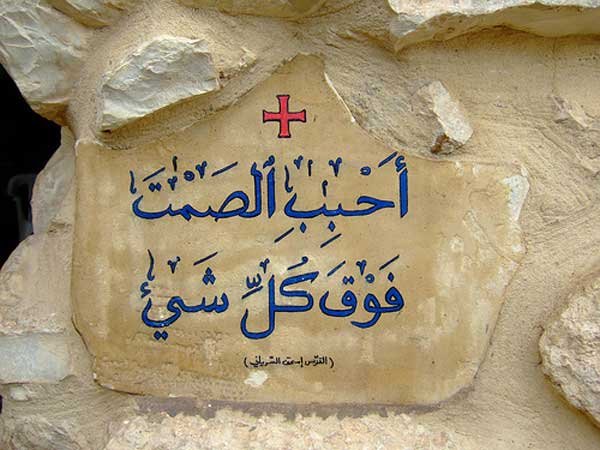 أَحْبِبِ الصَمْتَ
فَوْقَ كُلِّ شَيْءٍ
(القديس إسحق السرياني)